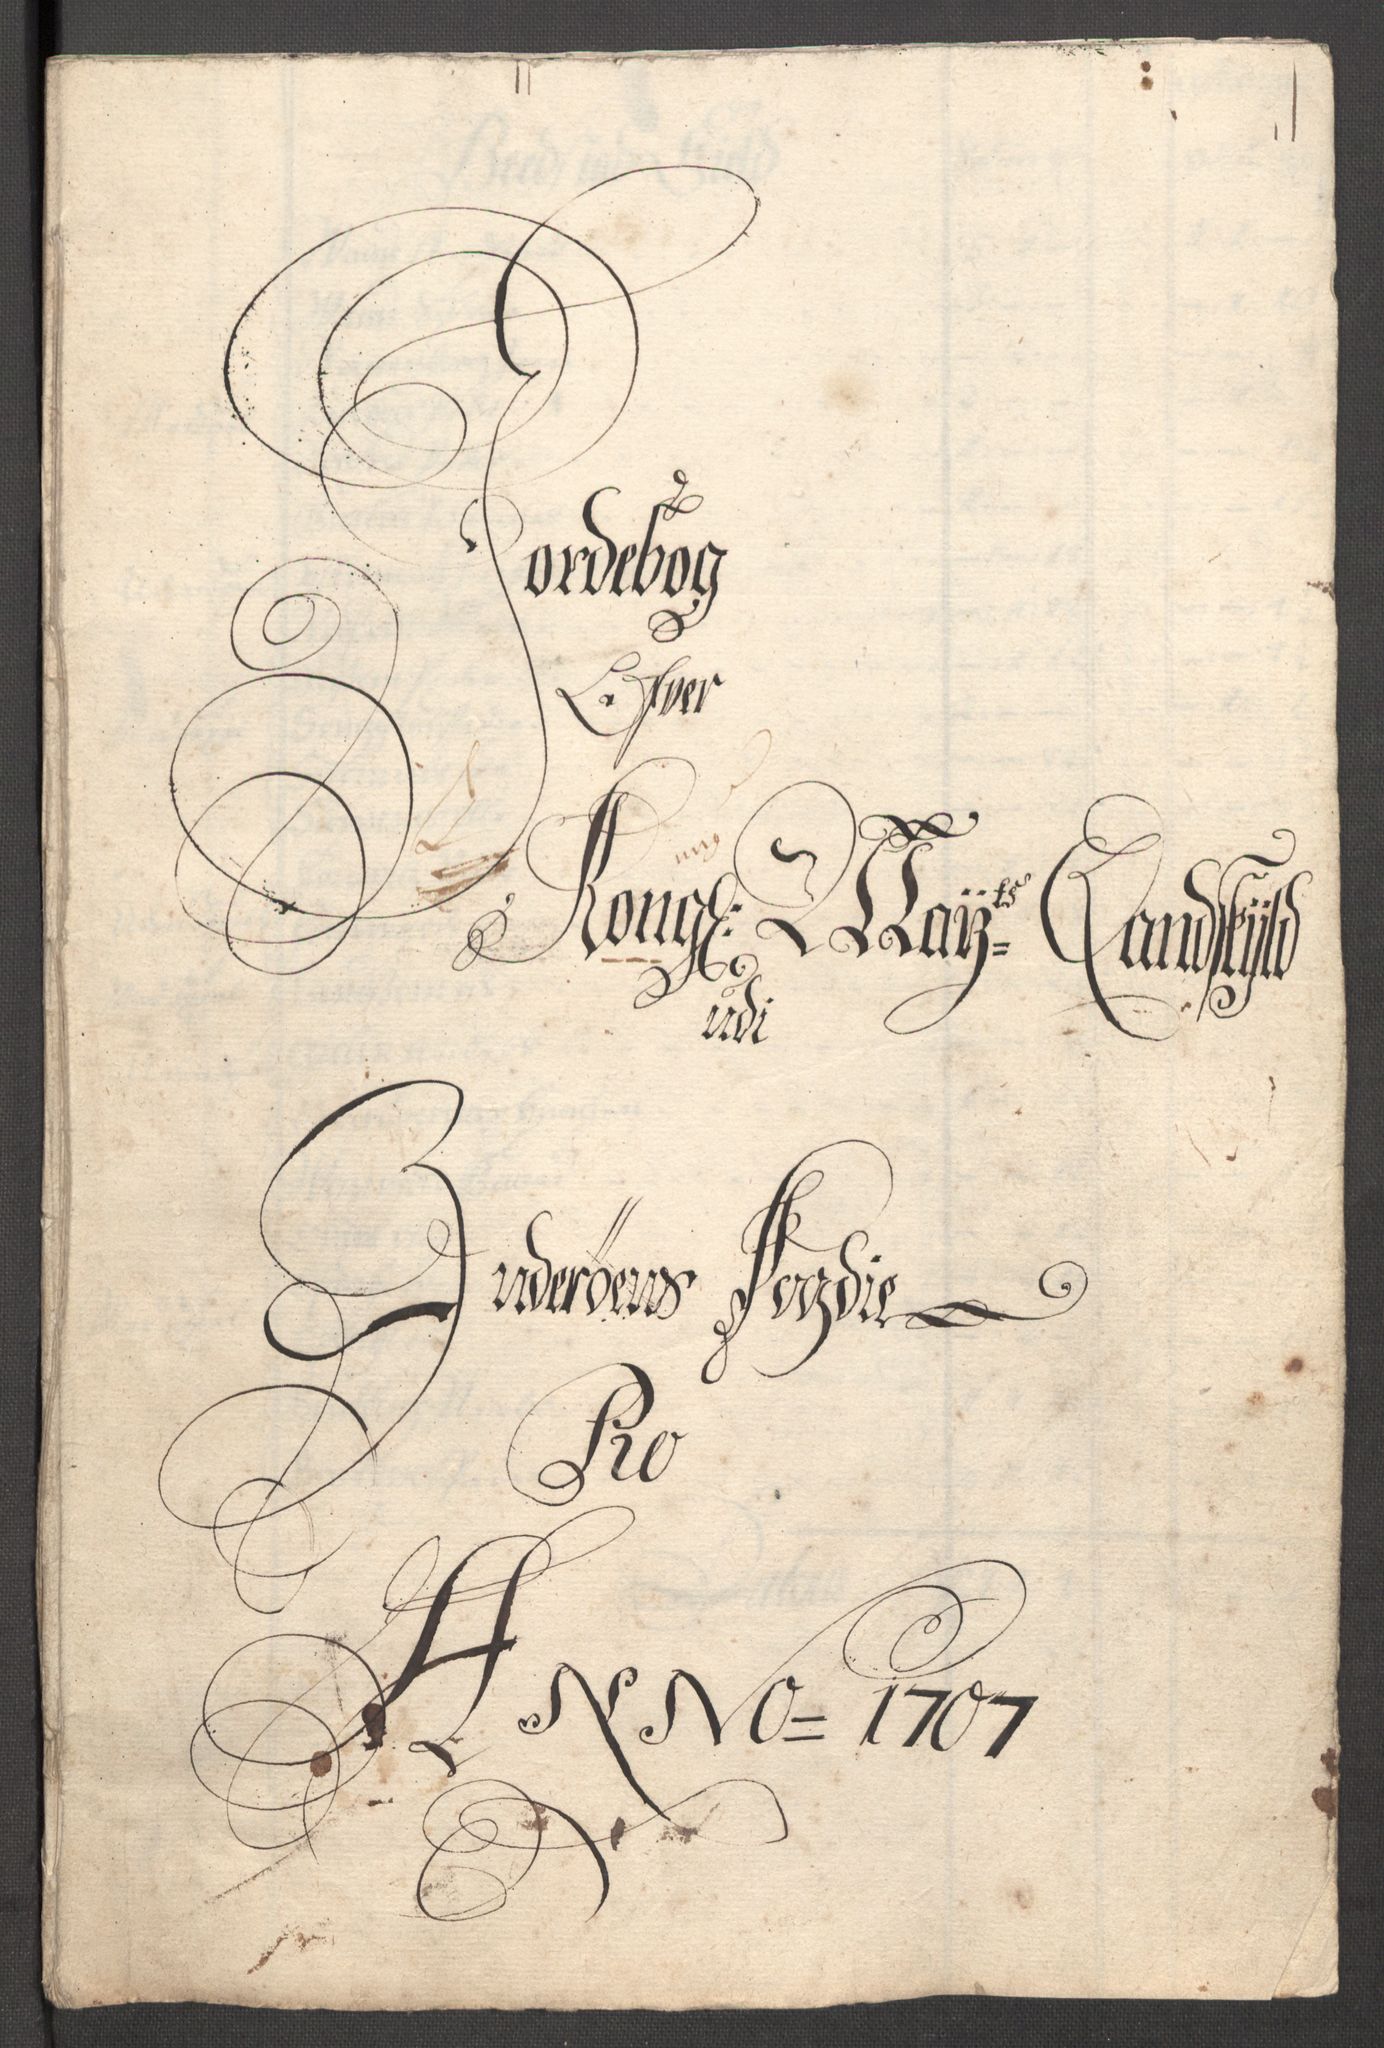 Jordebog
Ofver
Kongl: Maÿ:ts Landskÿld
udi
Inderöens Fogdie
Pro
ANNO= 1707